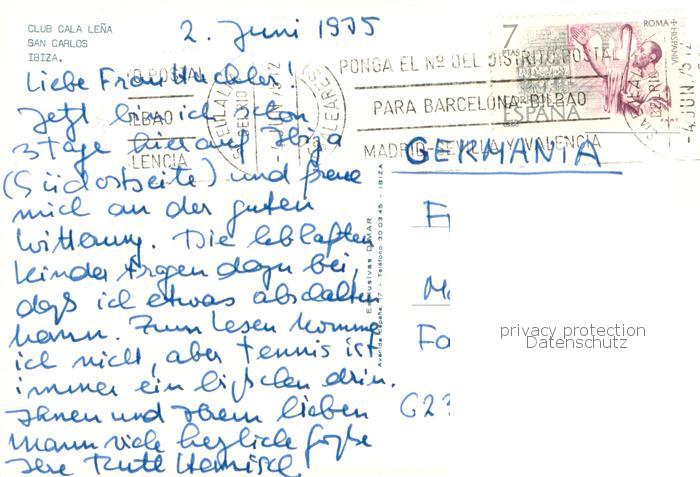 CLUB CALA LEÑA
SAN CARLOS
IBIZA.
2. Juni 1975
Liebe Frau
Jetzt bin ich schon
3 Tage hier auf Ibiza
(Südostseite) und freue
mich an der guten
Witterung. Die lebhaften
Kinder tragen dazu bei,
dass ich etwas abschalten
kann. Zum Lesen komme
ich nicht, aber Tennis ist
immer ein bisschen drin.
Ihnen und Ihrem lieben
Mann viele herzliche Grüße
Ihre Ruth
Exclusivas DIMAR
Avenida España 47 - Teléfono 300345 - IBIZA
7
PTAS
ROMA + HISPANIA
ESPAÑA
PONGA EL Nº DEL DISTRITO POSTAL
PARA BARCELONA-BILBAO
MADRID-SEVILLA Y VALENCIA
POSTAL
BILBAO
LENCIA
BALEARES
-4 JUN 75
GERMANIA
privacy protection
Datenschutz